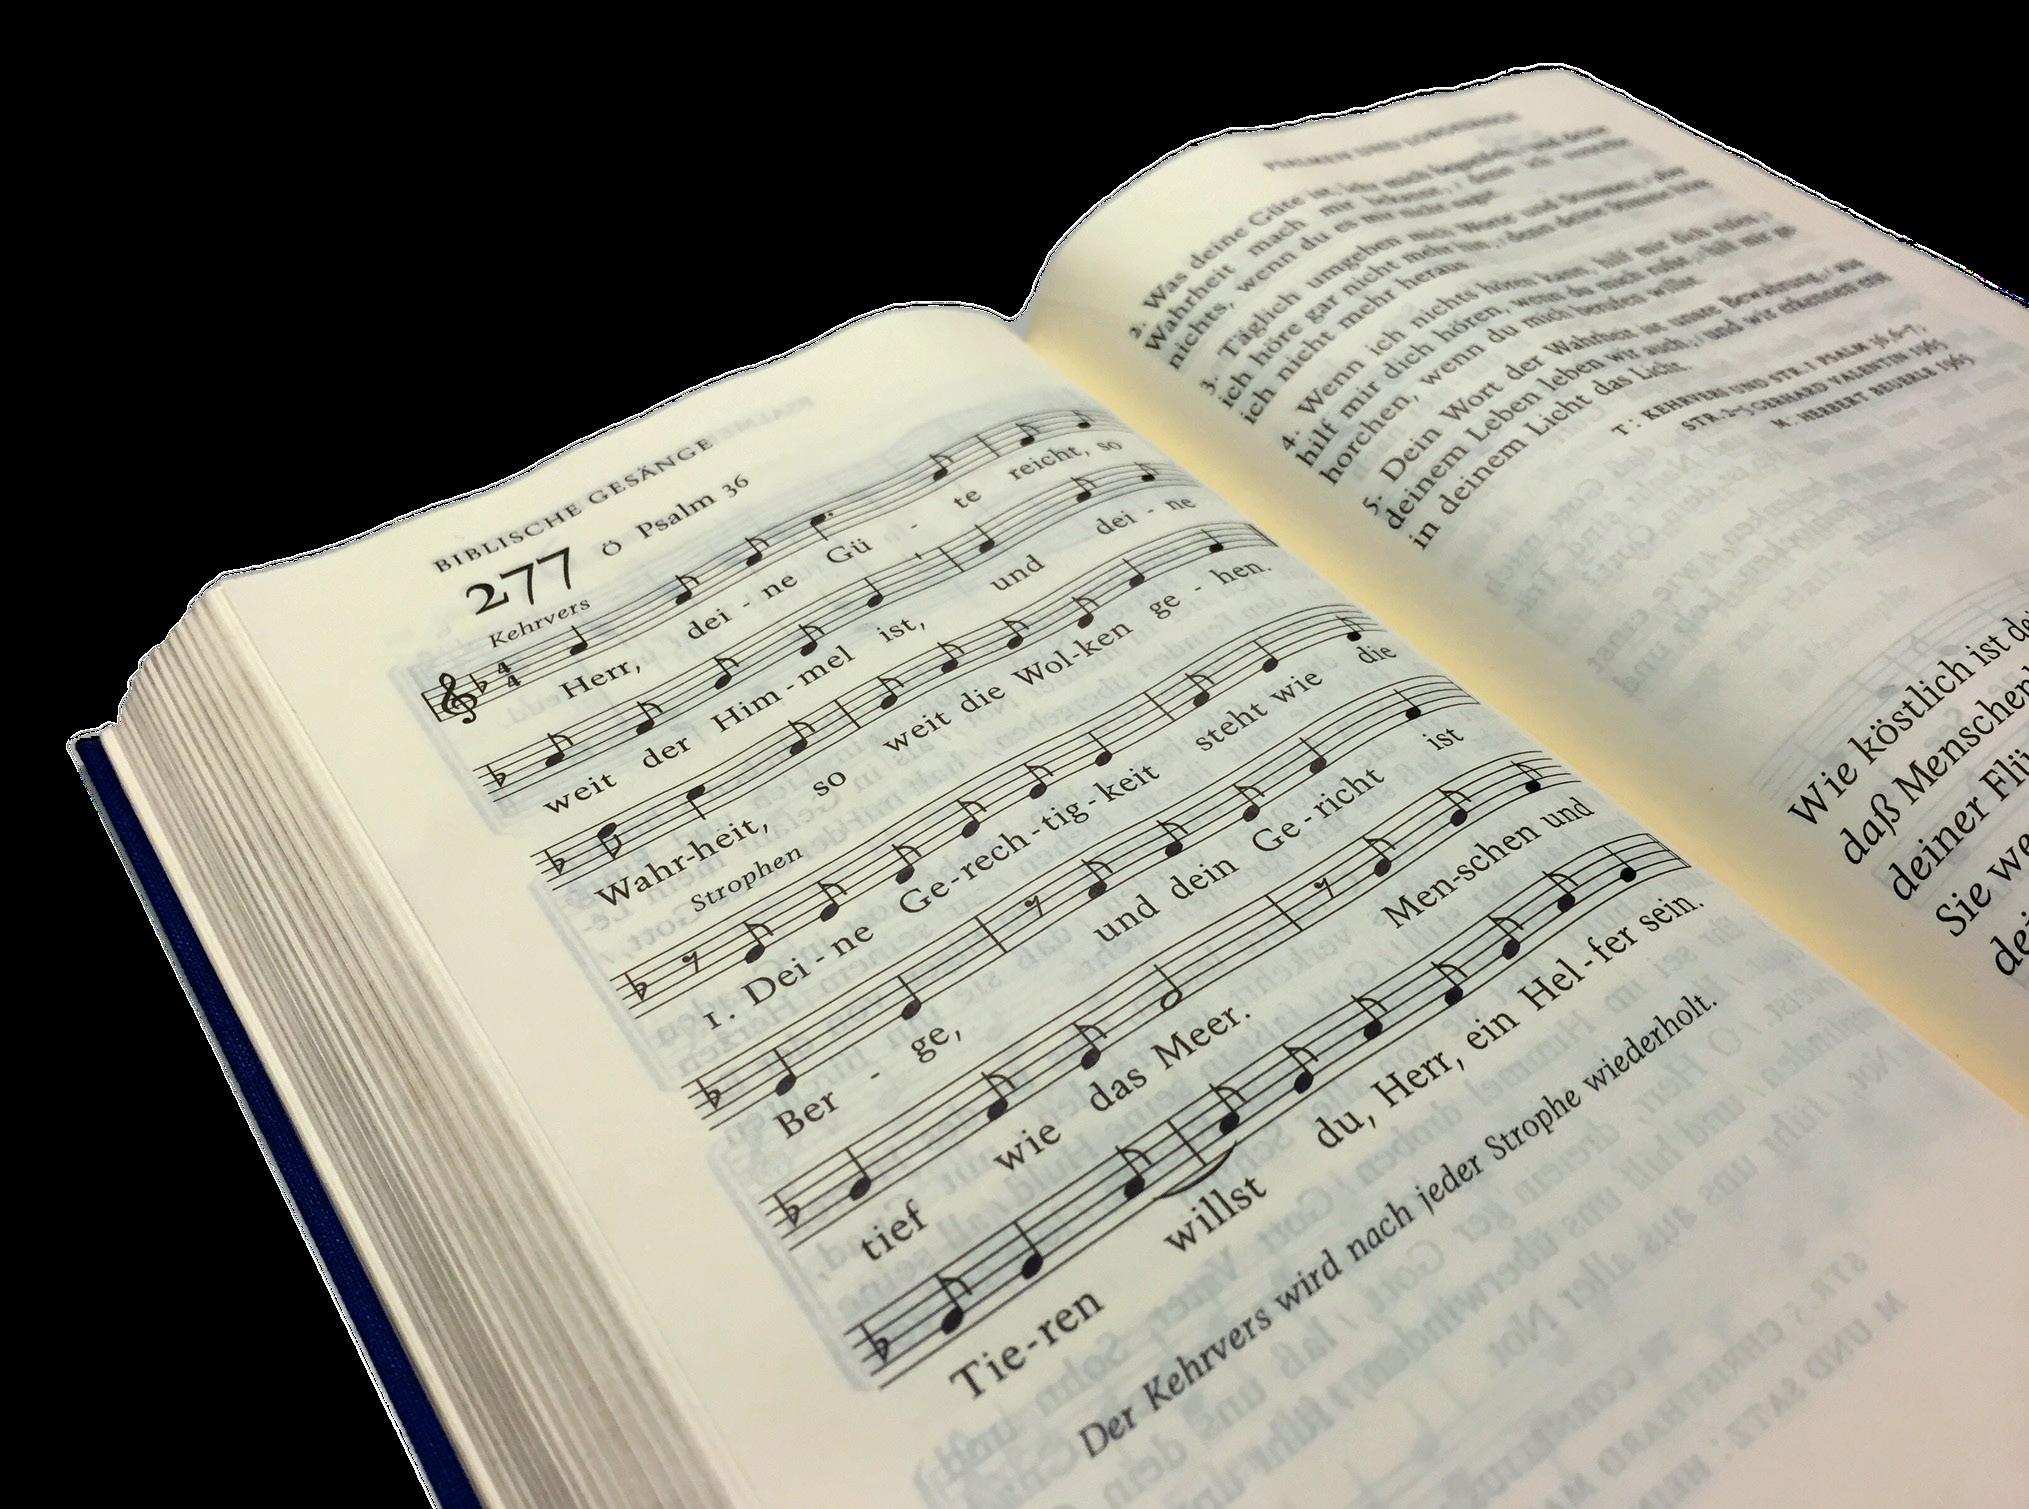 BIBLISCHE GESÄNGE
277 ö Psalm 36
Kehrvers
Herr, dei - ne Gü - te reicht, so
weit der Him - mel ist, und dei - ne
Wahr-heit, so weit die Wol-ken ge - hen.
Strophen
1. Dei - ne Ge-rech-tig-keit steht wie die
Ber - ge, und dein Ge-richt ist
tief wie das Meer. Men-schen und
Tie-ren willst du, Herr, ein Hel-fer sein.
Der Kehrvers wird nach jeder Strophe wiederholt.
PSALMEN UND LOBGESÄNGE
2. Was deine Güte ist, lehr mich begreifen, / und deine
Wahrheit mach mir bekannt, / denn ich verstehe
nichts, wenn du es mir nicht sagst.
3. Täglich umgeben mich Worte und Stimmen, / aber
ich höre gar nicht mehr hin, / denn deine Stimme höre
ich nicht mehr heraus.
4. Wenn ich nichts hören kann, hilf mir dich rufen, /
hilf mir dich hören, wenn du mich rufst, / hilf mir ge-
horchen, wenn du mich berufen willst.
5. Dein Wort der Wahrheit ist unsre Bewahrung, / aus
deinem Leben leben wir auch, / und wir erkennen erst
in deinem Licht das Licht.
T: KEHRVERS UND STR. 1 PSALM 36,6-7,
STR. 2-5 GERHARD VALENTIN 1965
M: HERBERT BEUERLE 1965
Wie köstlich ist
daß Menschen
deiner
Sie